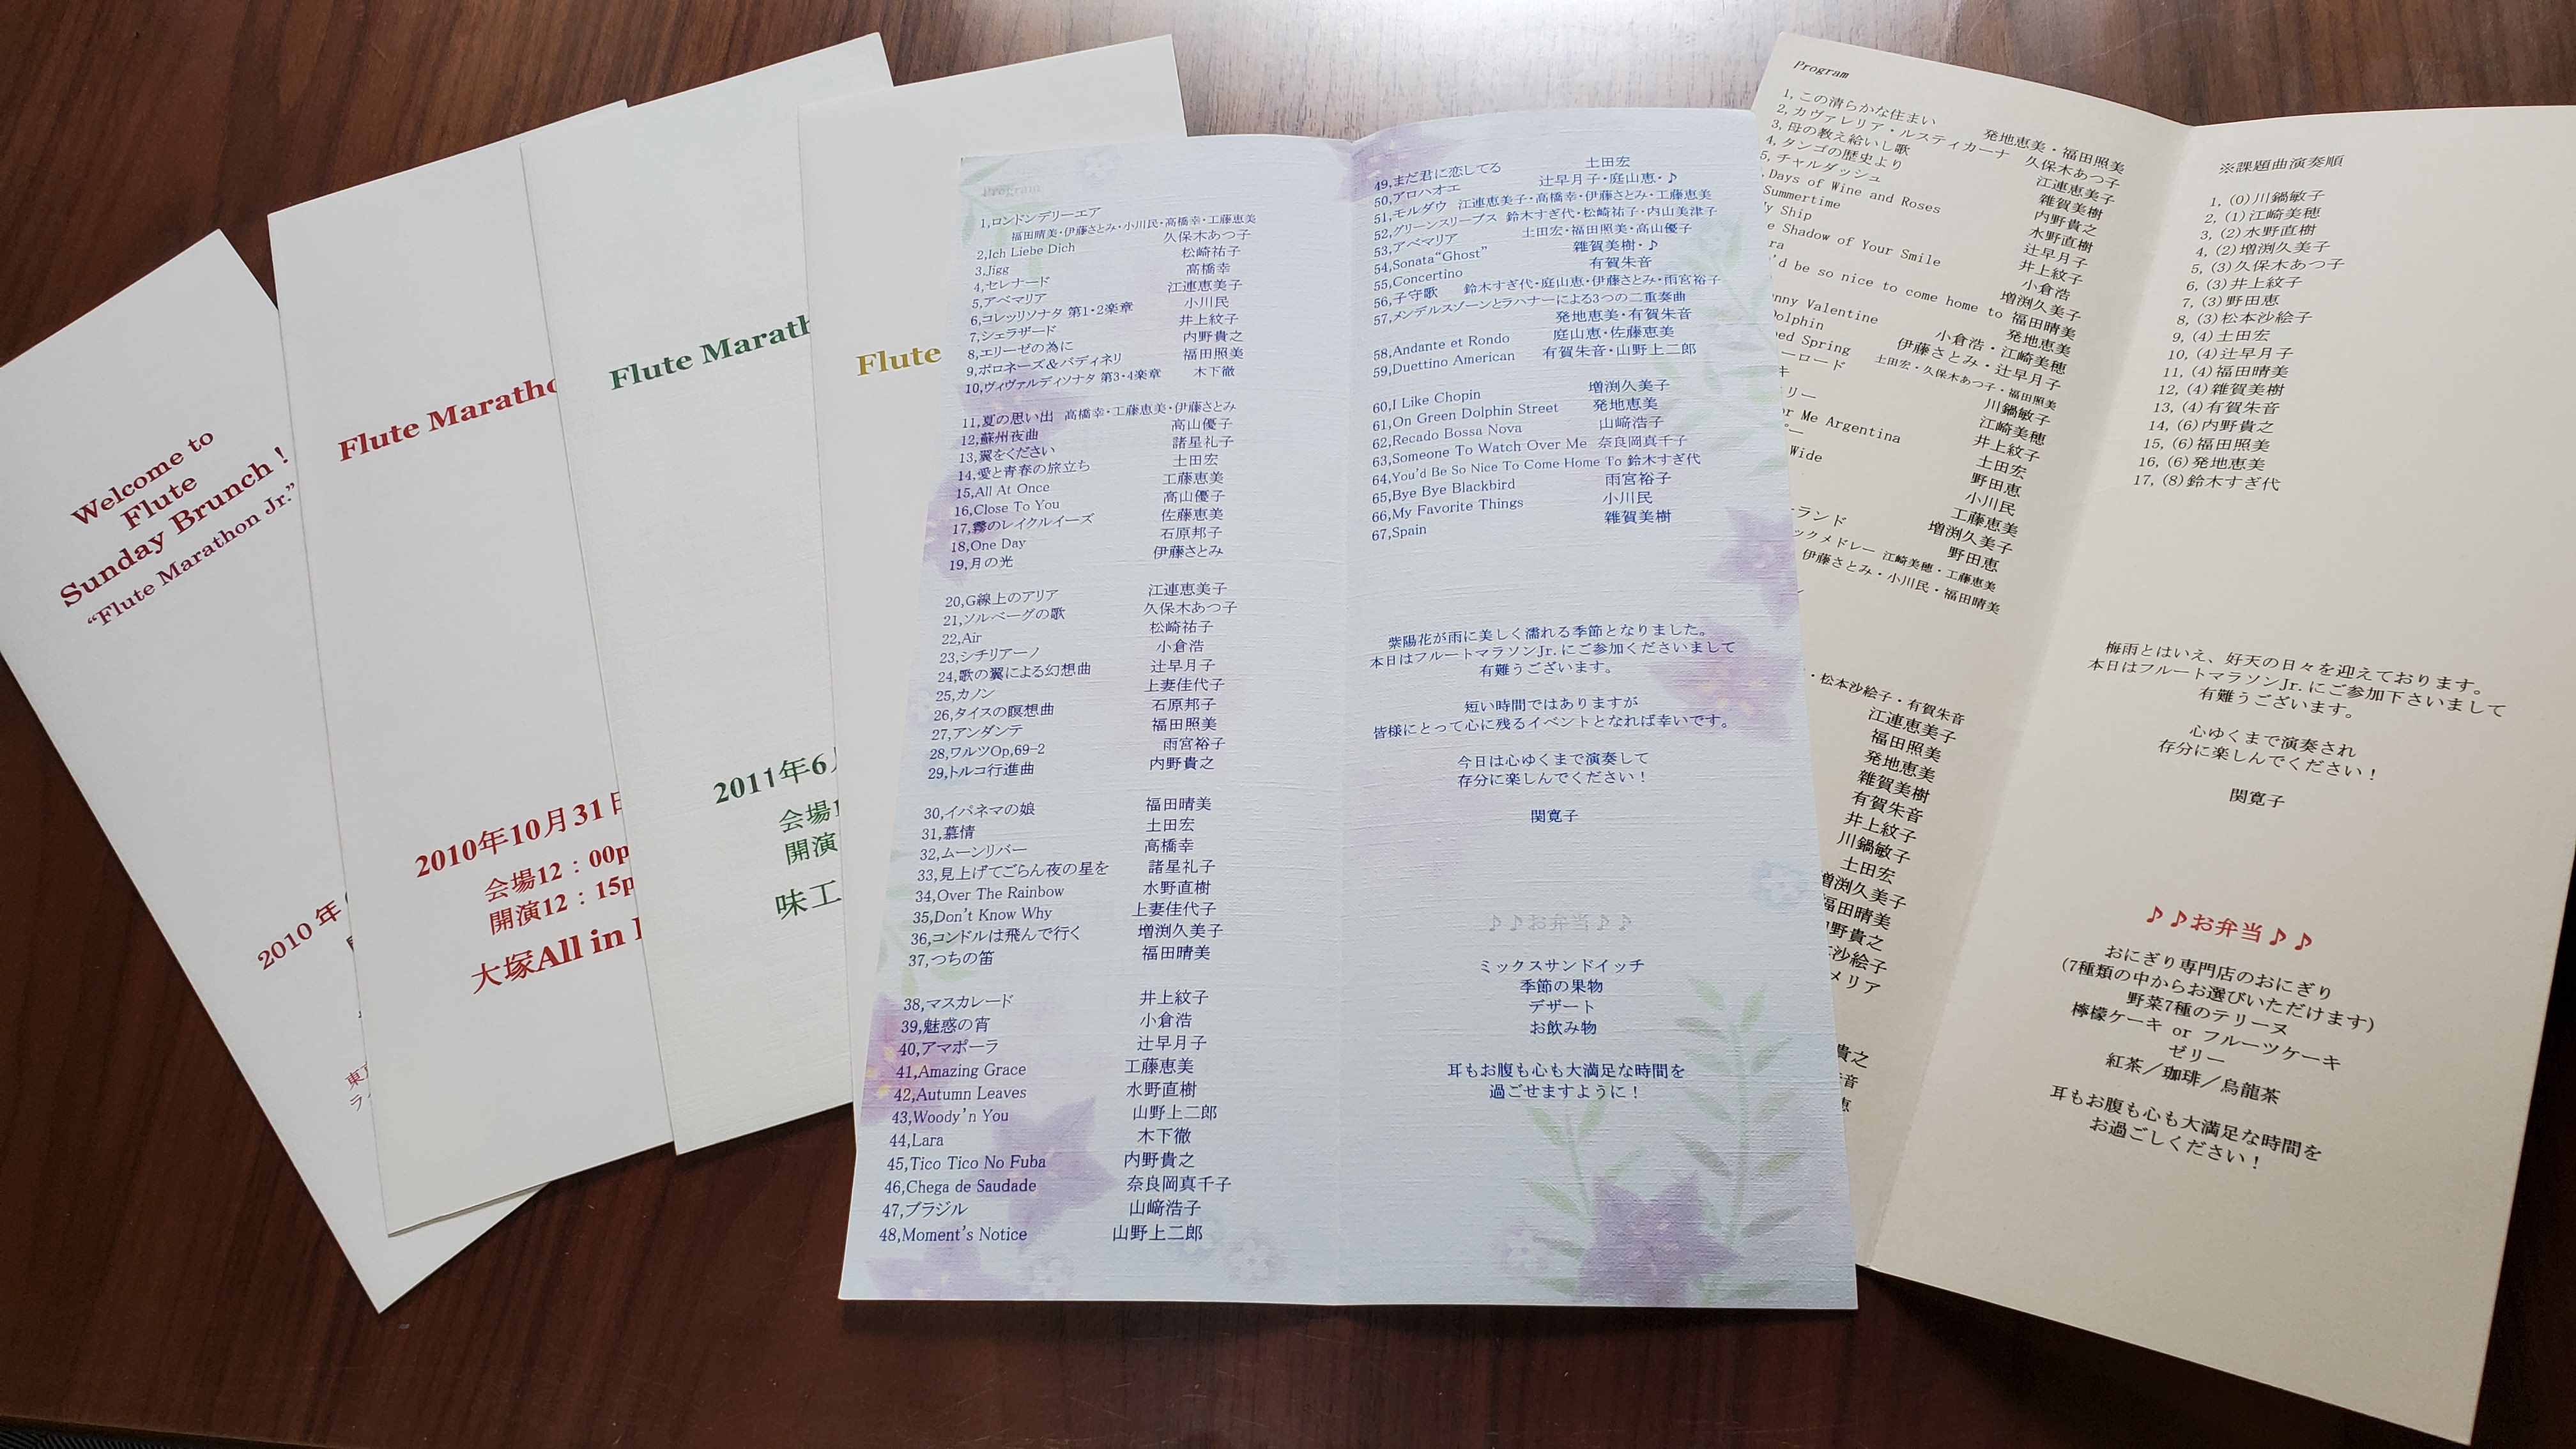 Welcome to
Flute
Sunday Brunch !
“Flute Marathon Jr.”
2010 年
Flute Maratho
2010年10月31日
会場12：00p
開演12：15p
大塚All in
Flute Marath
2011年6月
会場1
開演
味工
Flute
Program
1,ロンドンデリーエア
福田晴美・伊藤さとみ・小川民・高橋幸・工藤恵美
2,Ich Liebe Dich 久保木あつ子
3,Jigg 松崎祐子
4,セレナード 高橋幸
5,アベマリア 江連恵美子
6,コレッリソナタ 第1・2楽章 小川民
7,シェラザード 井上紋子
8,エリーゼの為に 内野貴之
9,ポロネーズ＆バディネリ 福田照美
10,ヴィヴァルディソナタ 第3・4楽章 木下徹
11,夏の思い出 高橋幸・工藤恵美・伊藤さとみ
12,蘇州夜曲 高山優子
13,翼をください 諸星礼子
14,愛と青春の旅立ち 土田宏
15,All At Once 工藤恵美
16,Close To You 高山優子
17,霧のレイクルイーズ 佐藤恵美
18,One Day 石原邦子
19,月の光 伊藤さとみ
20,G線上のアリア 江連恵美子
21,ソルベーグの歌 久保木あつ子
22,Air 松崎祐子
23,シチリアーノ 小倉浩
24,歌の翼による幻想曲 辻早月子
25,カノン 上妻佳代子
26,タイスの瞑想曲 石原邦子
27,アンダンテ 福田照美
28,ワルツOp,69-2 雨宮裕子
29,トルコ行進曲 内野貴之
30,イパネマの娘 福田晴美
31,慕情 土田宏
32,ムーンリバー 高橋幸
33,見上げてごらん夜の星を 諸星礼子
34,Over The Rainbow 水野直樹
35,Don't Know Why 上妻佳代子
36,コンドルは飛んで行く 増渕久美子
37,つちの笛 福田晴美
38,マスカレード 井上紋子
39,魅惑の宵 小倉浩
40,アマポーラ 辻早月子
41,Amazing Grace 工藤恵美
42,Autumn Leaves 水野直樹
43,Woody'n You 山野上二郎
44,Lara 木下徹
45,Tico Tico No Fuba 内野貴之
46,Chega de Saudade 奈良岡真千子
47,ブラジル 山﨑浩子
48,Moment's Notice 山野上二郎
49,まだ君に恋してる 土田宏
50,アロハオエ 辻早月子・庭山恵・♪
51,モルダウ 江連恵美子・高橋幸・伊藤さとみ・工藤恵美
52,グリーンスリーブス 鈴木すぎ代・松崎祐子・内山美津子
53,アベマリア 土田宏・福田照美・高山優子
54,Sonata“Ghost” 雑賀美樹・♪
55,Concertino 有賀朱音
56,子守歌 鈴木すぎ代・庭山恵・伊藤さとみ・雨宮裕子
57,メンデルスゾーンとラハナーによる3つの二重奏曲
発地恵美・有賀朱音
58,Andante et Rondo 庭山恵・佐藤恵美
59,Duettino American 有賀朱音・山野上二郎
60,I Like Chopin 増渕久美子
61,On Green Dolphin Street 発地恵美
62,Recado Bossa Nova 山﨑浩子
63,Someone To Watch Over Me 奈良岡真千子
64,You'd Be So Nice To Come Home To 鈴木すぎ代
65,Bye Bye Blackbird 雨宮裕子
66,My Favorite Things 小川民
67,Spain 雑賀美樹
紫陽花が雨に美しく濡れる季節となりました。
本日はフルートマラソンJr.にご参加くださいまして
有難うございます。
短い時間ではありますが
皆様にとって心に残るイベントとなれば幸いです。
今日は心ゆくまで演奏して
存分に楽しんでください！
関寛子
♪♪お弁当♪♪
ミックスサンドイッチ
季節の果物
デザート
お飲み物
耳もお腹も心も大満足な時間を
過ごせますように！
Program
1, この清らかな住まい 発地恵美・福田照美
2, カヴァレリア・ルスティカーナ 久保木あつ子
3, 母の教え給いし歌 江連恵美子
4, タンゴの歴史より 雑賀美樹
5, チャルダッシュ 内野貴之
Days of Wine and Roses 水野直樹
Summertime 辻早月子
y Ship 井上紋子
e Shadow of Your Smile 小倉浩
ra 増渕久美子
'd be so nice to come home to 福田晴美
nny Valentine 発地恵美
olphin 小倉浩・江崎美穂
ed Spring 伊藤さとみ・辻早月子
ーロード 土田宏・久保木あつ子・福田照美
キ 川鍋敏子
リー 江崎美穂
r Me Argentina 井上紋子
土田宏
Wide 野田恵
小川民
工藤恵美
ーランド 増渕久美子
ックメドレー 野田恵
江崎美穂・工藤恵美
伊藤さとみ・小川民・福田晴美
・松本沙絵子・有賀朱音
江連恵美子
福田照美
発地恵美
雑賀美樹
有賀朱音
井上紋子
川鍋敏子
土田宏
増渕久美子
福田晴美
野貴之
沙絵子
メリア
貴之
音
恵
※課題曲演奏順
1, (0)川鍋敏子
2, (1)江崎美穂
3, (2)水野直樹
4, (2)増渕久美子
5, (3)久保木あつ子
6, (3)井上紋子
7, (3)野田恵
8, (3)松本沙絵子
9, (4)土田宏
10, (4)辻早月子
11, (4)福田晴美
12, (4)雑賀美樹
13, (4)有賀朱音
14, (6)内野貴之
15, (6)福田照美
16, (6)発地恵美
17, (8)鈴木すぎ代
梅雨とはいえ、好天の日々を迎えております。
本日はフルートマラソンJr.にご参加下さいまして
有難うございます。
心ゆくまで演奏され
存分に楽しんでください！
関寛子
♪♪お弁当♪♪
おにぎり専門店のおにぎり
(7種類の中からお選びいただけます)
野菜7種のテリーヌ
檸檬ケーキ or フルーツケーキ
ゼリー
紅茶／珈琲／烏龍茶
耳もお腹も心も大満足な時間を
お過ごしください！